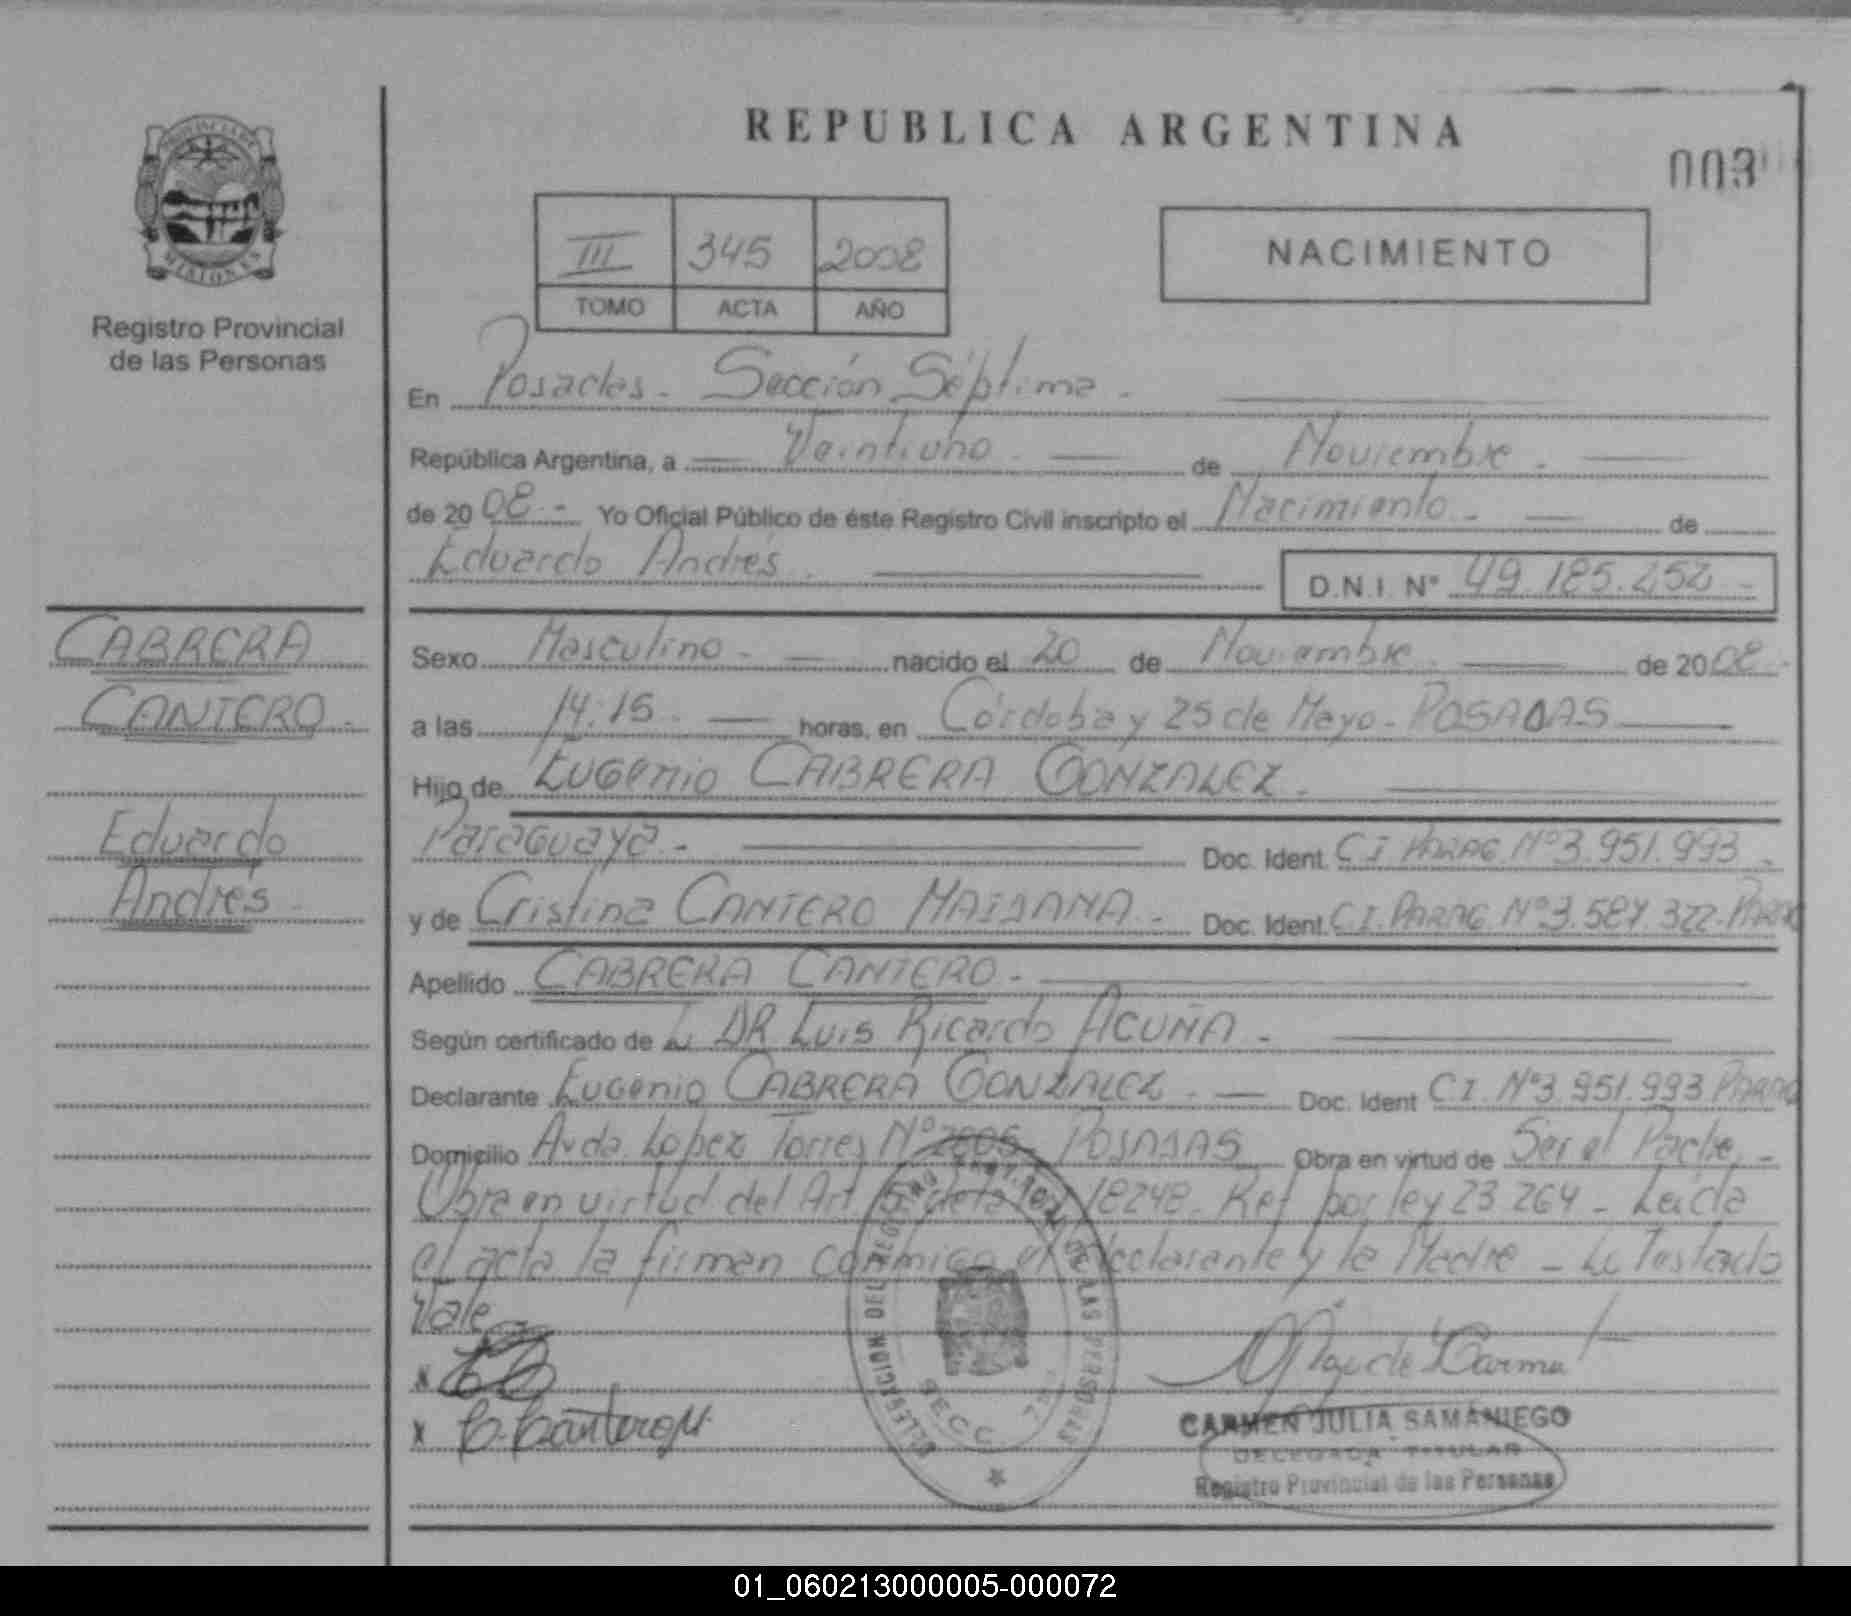 REPUBLICA ARGENTINA
003
PROVINCIA DE
MISIONES
Registro Provincial
de las Personas
III 345 2008
TOMO ACTA AÑO
NACIMIENTO
En Posadas - Sección Séptima -
República Argentina, a Veintiuno - de Noviembre -
de 2008 - Yo Oficial Público de éste Registro Civil inscripto el Nacimiento - de
Eduardo Andrés
D.N.I. N° 49.185.252 -
CABRERA
CANTERO -
Eduardo
Andrés -
Sexo Masculino - nacido el 20 de Noviembre de 2008 -
a las 14:15 horas, en Córdoba y 25 de Mayo - POSADAS
Hijo de Eugenio CABRERA GONZALEZ -
Paraguaya - Doc. Ident. C.I. PARAG. N° 3.951.993 -
y de Cristina CANTERO MAIDANA - Doc. Ident. C.I. PARAG. N° 3.587.322 - PARAG
Apellido CABRERA CANTERO -
Según certificado de L DR Luis Ricardo ACUÑA -
Declarante Eugenio CABRERA GONZALEZ - Doc. Ident C.I. N° 3.951.993 PARAG
Domicilio Avda. Lopez Torres N° 2605 - POSADAS Obra en virtud de Ser el Padre -
Obra en virtud del Art. 5 de la 18248 - Ref por ley 23.264 - Leída
el acta la firman conmigo el declarante y la Madre - Lo Testado
Vale
x
x C. Cantero M.
DELEGACION DEL REGISTRO PROVINCIAL DE LAS PERSONAS
SECC. 7
CARMEN JULIA SAMANIEGO
DELEGADA TITULAR
Registro Provincial de las Personas
01_060213000005-000072